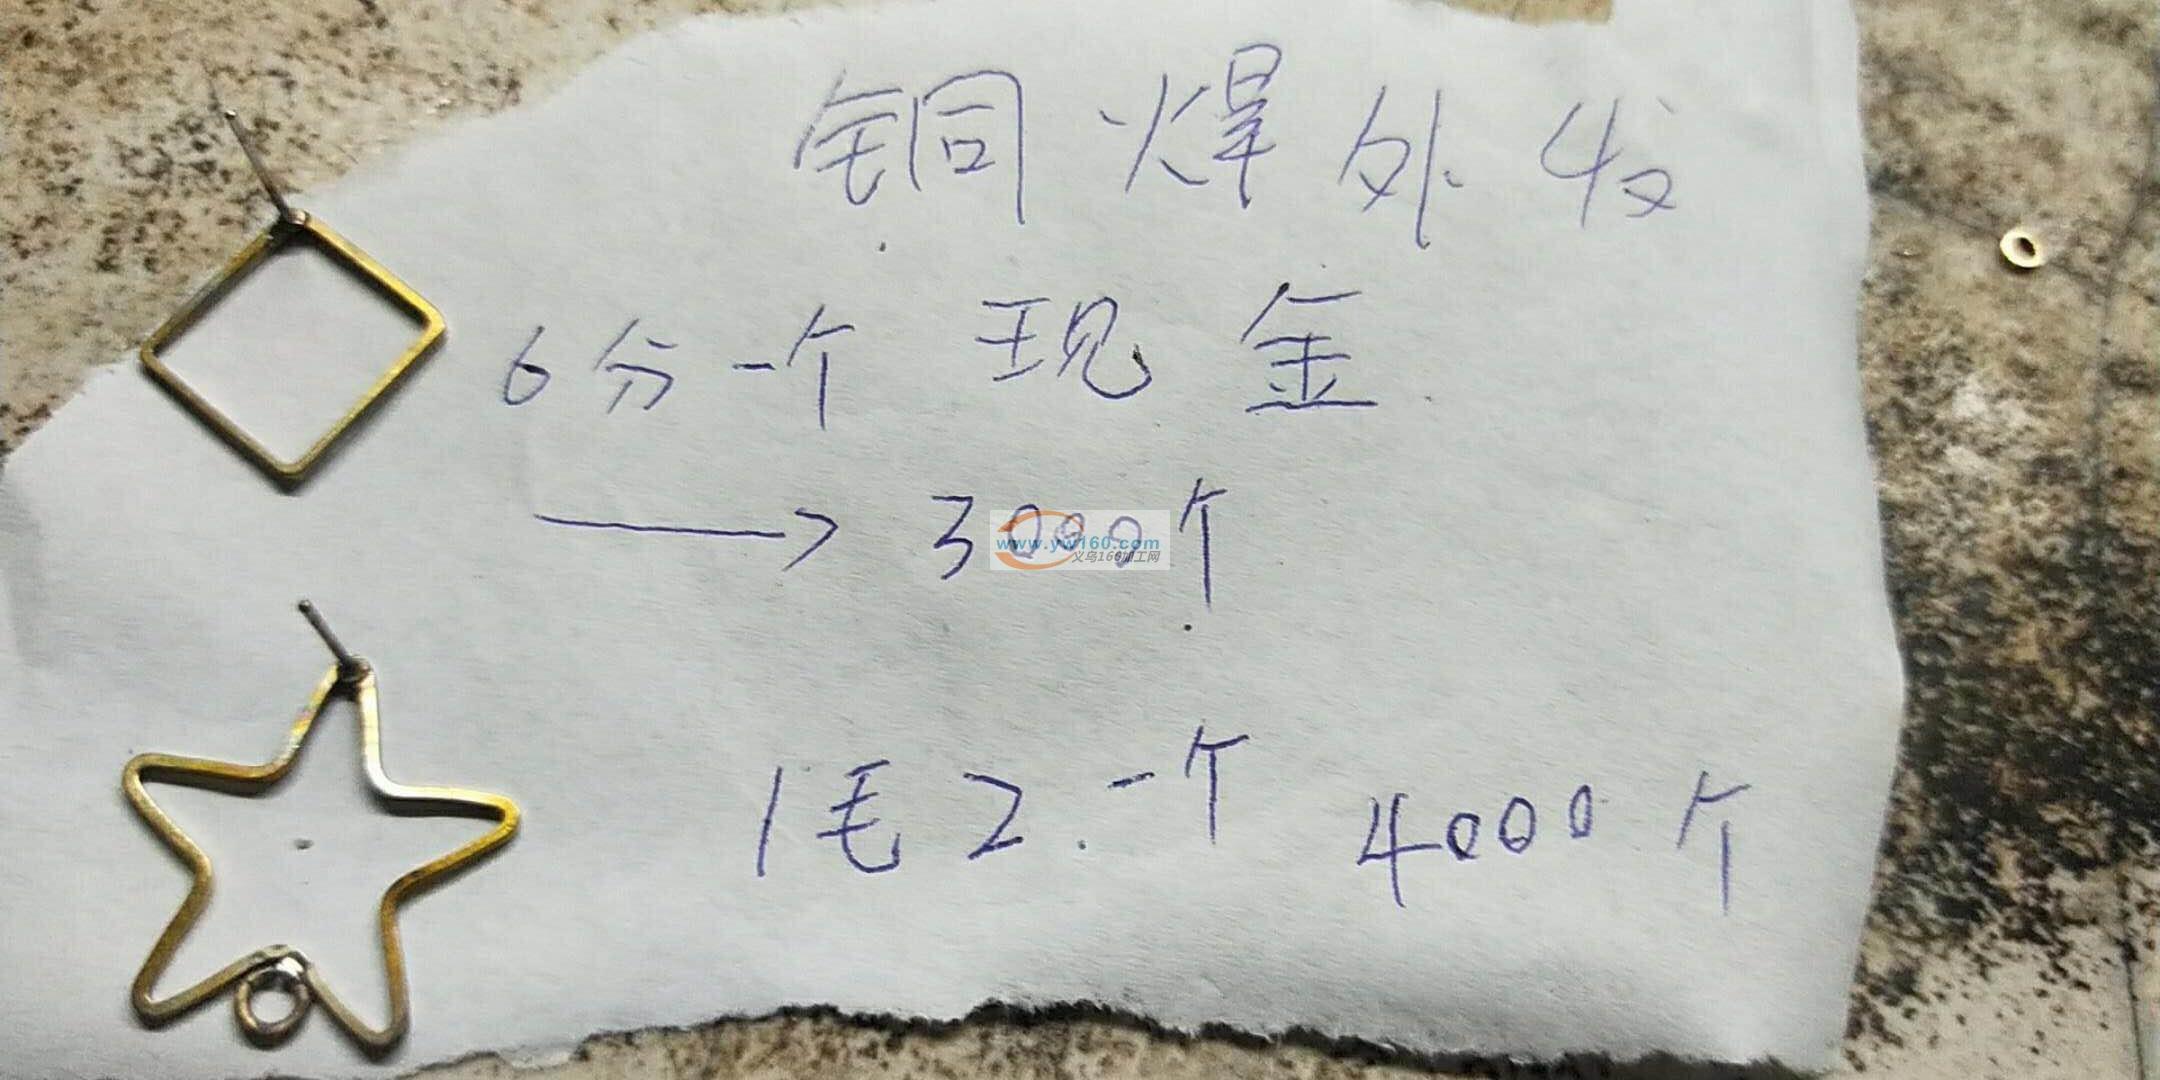 铜焊外发
6分一个 现金
→ 3000个
www.yw160.com
义乌160加工网
1毛2.一个 4000个